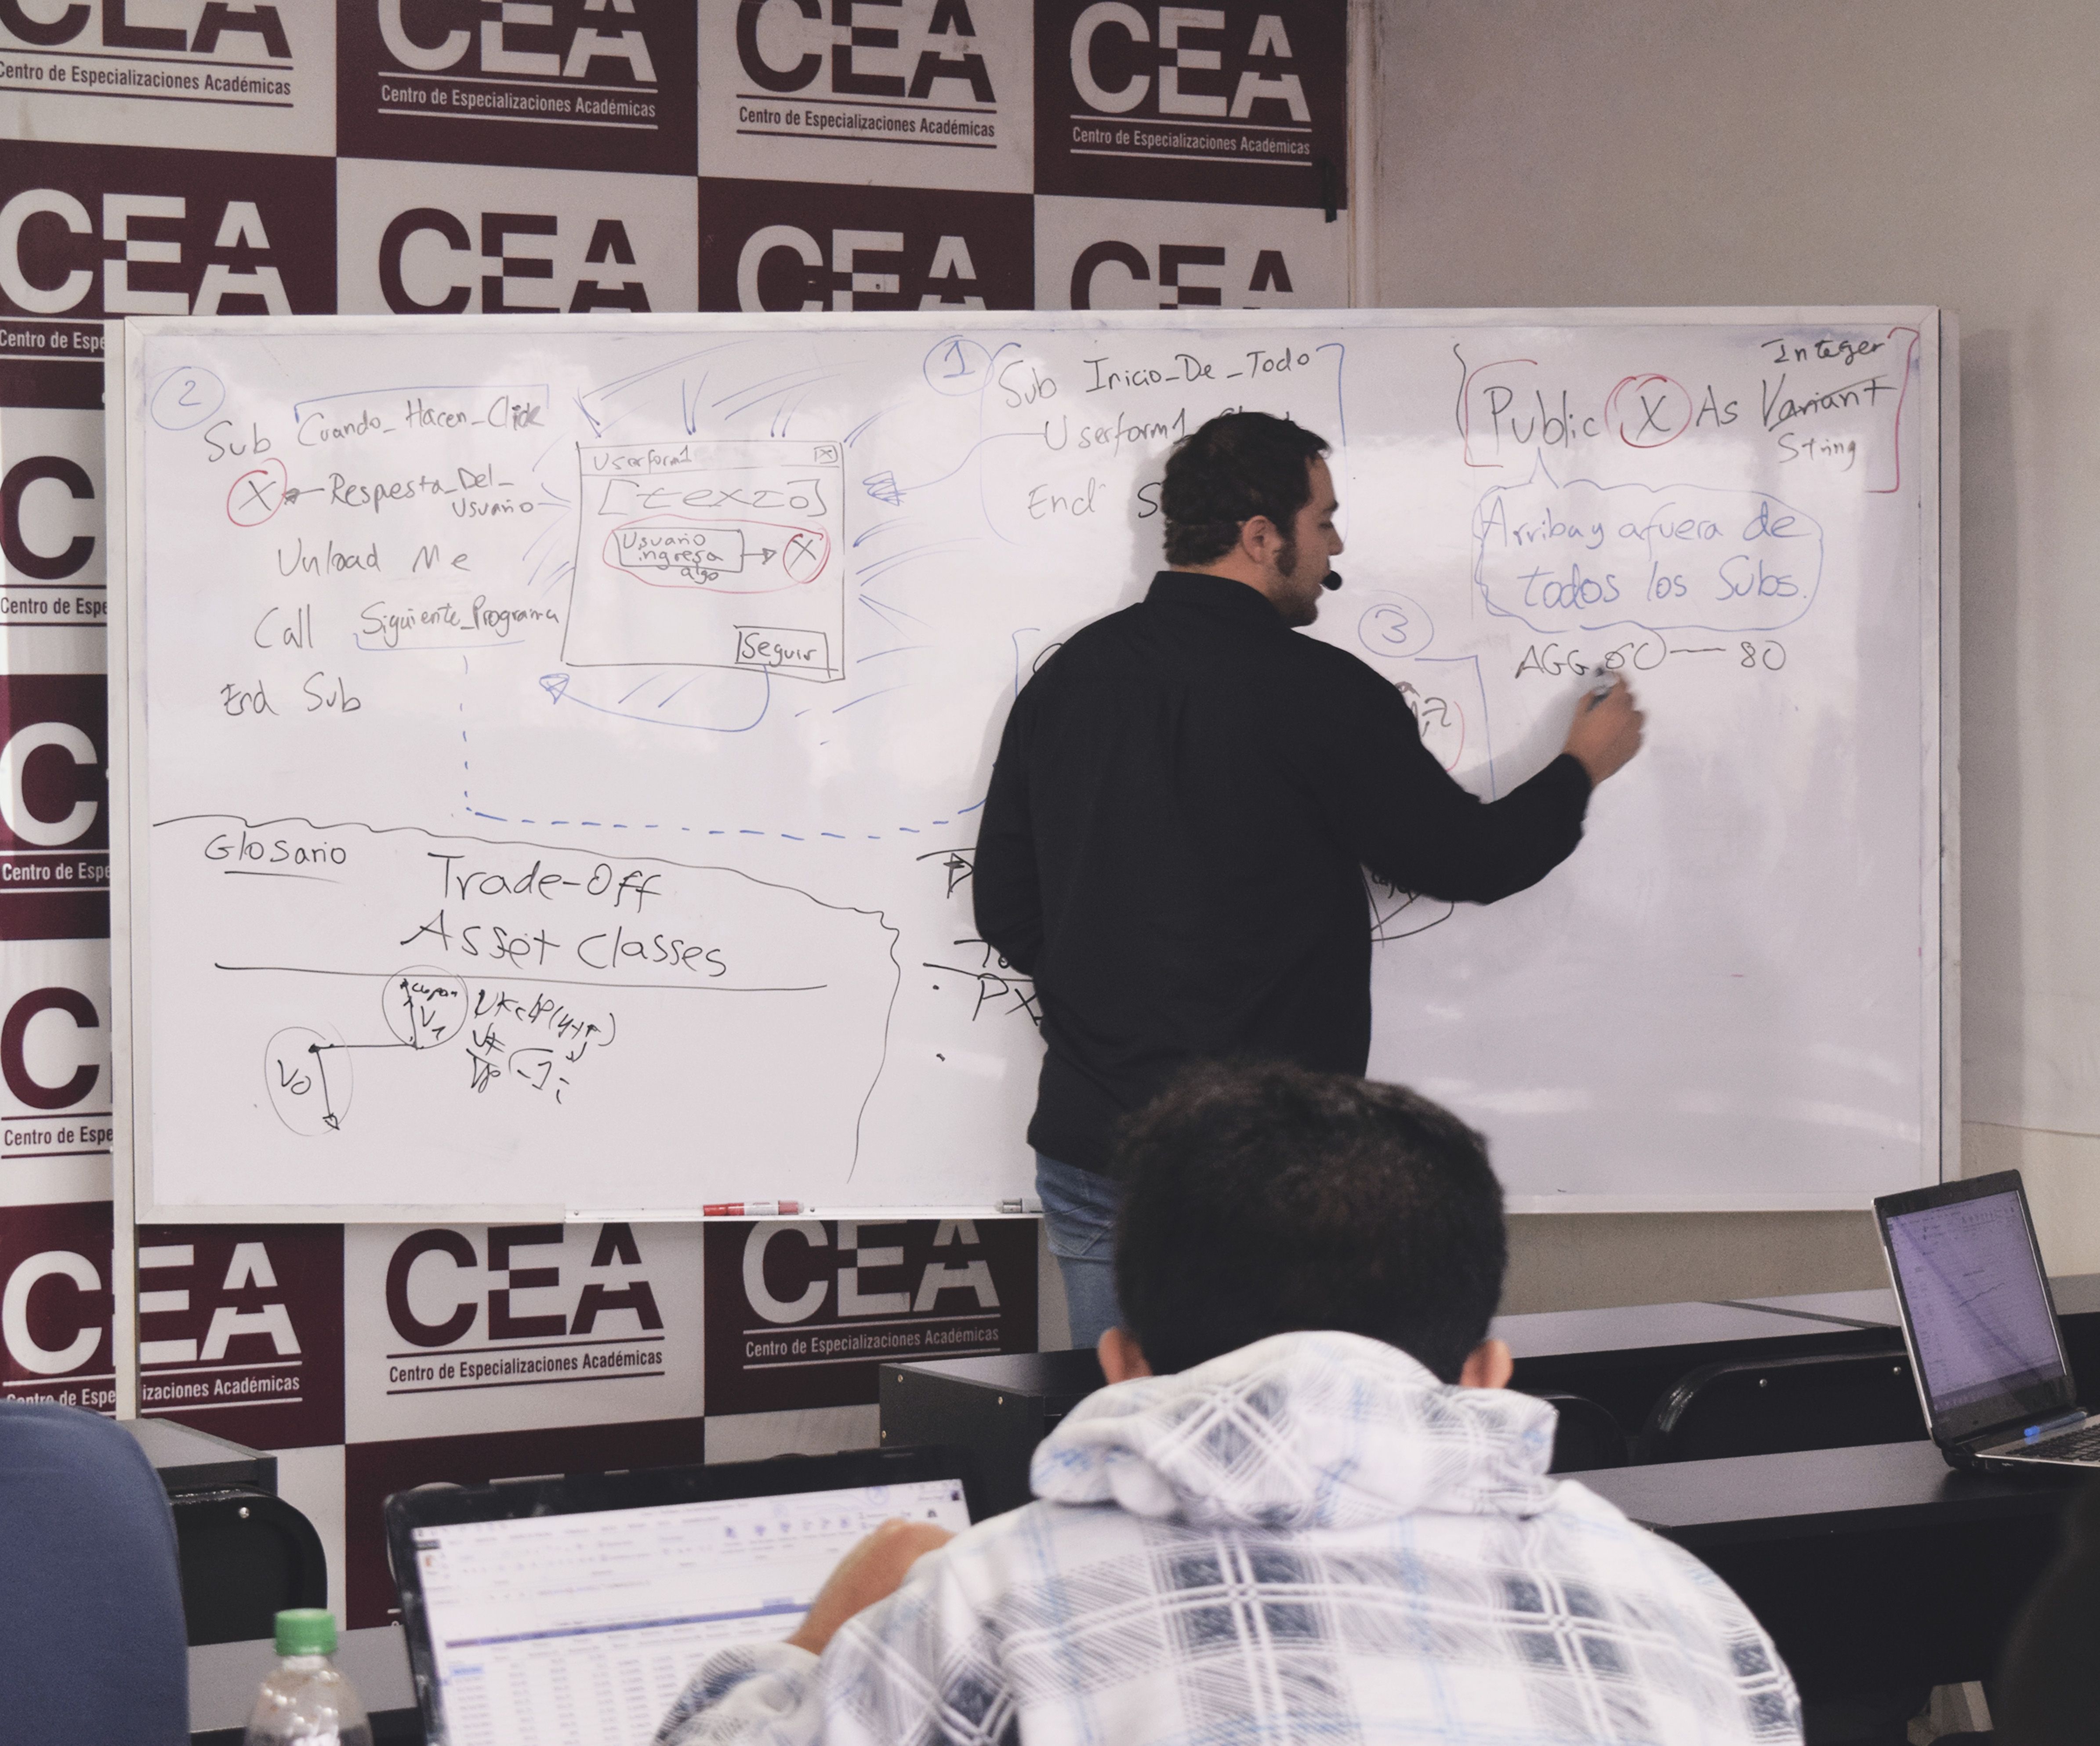 CEA
Centro de Especializaciones Académicas
CEA
Centro de Especializaciones Académicas
CEA
Centro de Especializaciones Académicas
CEA
Centro de Especializaciones Académicas
CEA
CEA
CEA
CEA
Centro de Espe
C
Centro de Espe
C
Centro de Espe
C
Centro de Espe
2
Sub Cuando_Hacen_Click
X Respesta_Del_
Usuario
Unload Me
Call Siguiente_Programa
End Sub
Userform1 X
[texto]
Usuario
ingresa
algo
X
Seguir
1
Sub Inicio_De_Todo
Userform1
End S
Integer
Public X As Variant
String
Arriba y afuera de
todos los Subs.
3
AGG 60 — 80
Glosario
Trade-Off
Asset Classes
cupon
V1
V0
PX
CEA
Centro de Especializaciones Académicas
CEA
Centro de Especializaciones Académicas
CEA
Centro de Especializaciones Académicas